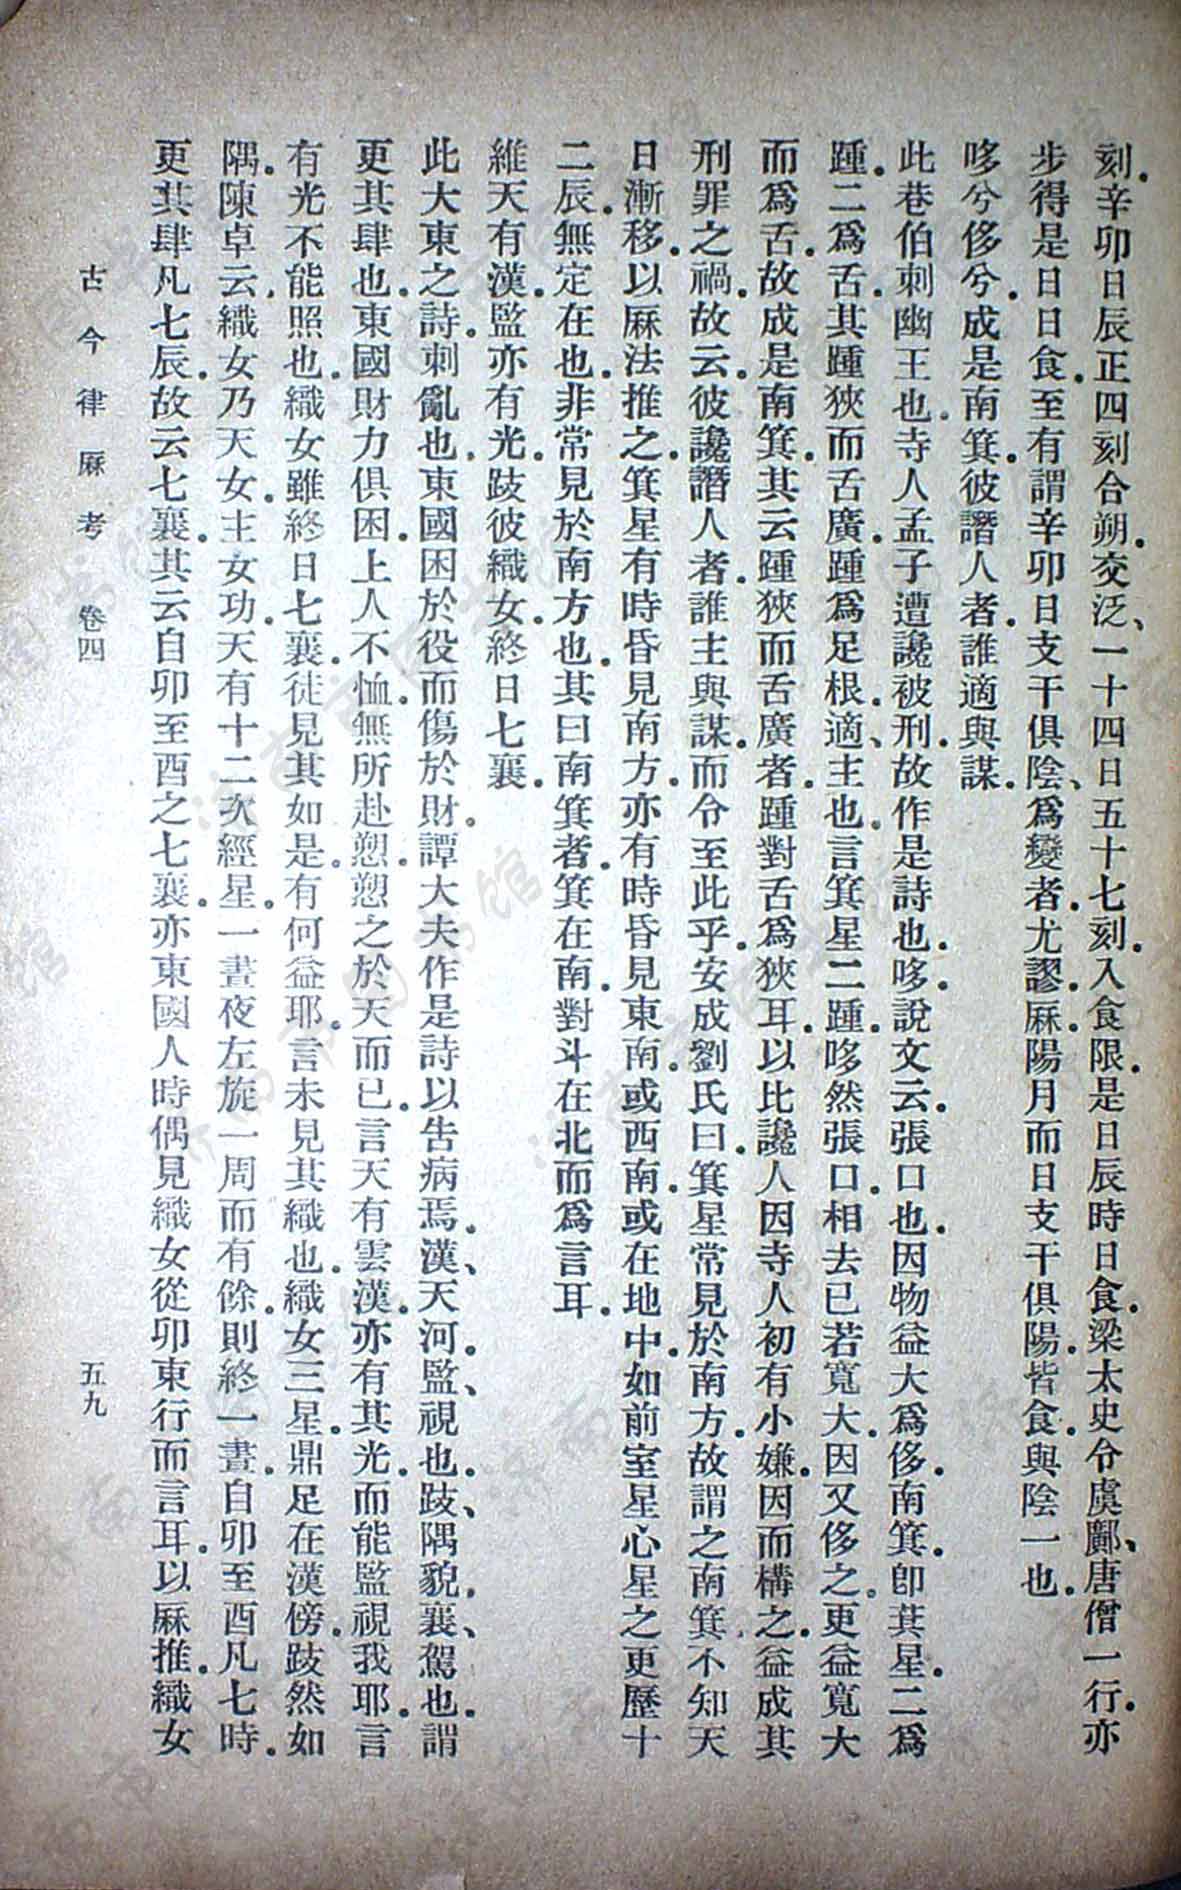 刻。辛卯日辰正四刻合朔。交泛、一十四日五十七刻。入食限。是日辰時日食。梁太史令虞𠠎、唐僧一行。亦
步得是日日食。至有謂辛卯日支干俱陰、爲變者。尤謬。厤陽月而日支干俱陽。皆食。與陰一也。
哆兮侈兮。成是南箕。彼譖人者。誰適與謀。
此巷伯刺幽王也。寺人孟子遭讒被刑。故作是詩也。哆、說文云。張口也。因物益大爲侈。南箕。卽萁星。二爲
踵。二爲舌。其踵狹而舌廣。踵爲足根。適、主也。言箕星二踵。哆然張口。相去已若寬大。因又侈之。更益寬大
而爲舌。故成是南箕。其云踵狹而舌廣者。踵對舌爲狹耳。以比讒人因寺人初有小嫌。因而構之。益成其
刑罪之禍。故云。彼讒譖人者。誰主與謀。而令至此乎。安成劉氏曰。箕星常見於南方。故謂之南箕。不知天
日漸移。以厤法推之。箕星有時昏見南方。亦有時昏見東南。或西南。或在地中。如前室星心星之更歷十
二辰。無定在也。非常見於南方也。其曰南箕者。箕在南。對斗在北而爲言耳。
維天有漢。監亦有光。跂彼織女。終日七襄。
此大東之詩。刺亂也。東國困於役而傷於財。譚大夫作是詩以告病焉。漢、天河。監、視也。跂、隅貌。襄、駕也。謂
更其肆也。東國財力俱困。上人不恤。無所赴愬。愬之於天而已。言天有雲漢。亦有其光。而能監視我耶。言
有光不能照也。織女雖終日七襄。徒見其如是。有何益耶。言未見其織也。織女三星。鼎足在漢傍。跂然如
隅。陳卓云。織女乃天女。主女功。天有十二次經星。一晝夜左旋一周而有餘。則終一晝。自卯至酉。凡七時。
更其肆凡七辰。故云七襄。其云自卯至酉之七襄。亦東國人時偶見織女從卯東行而言耳。以厤推。織女
古今律厤考 卷四 五九